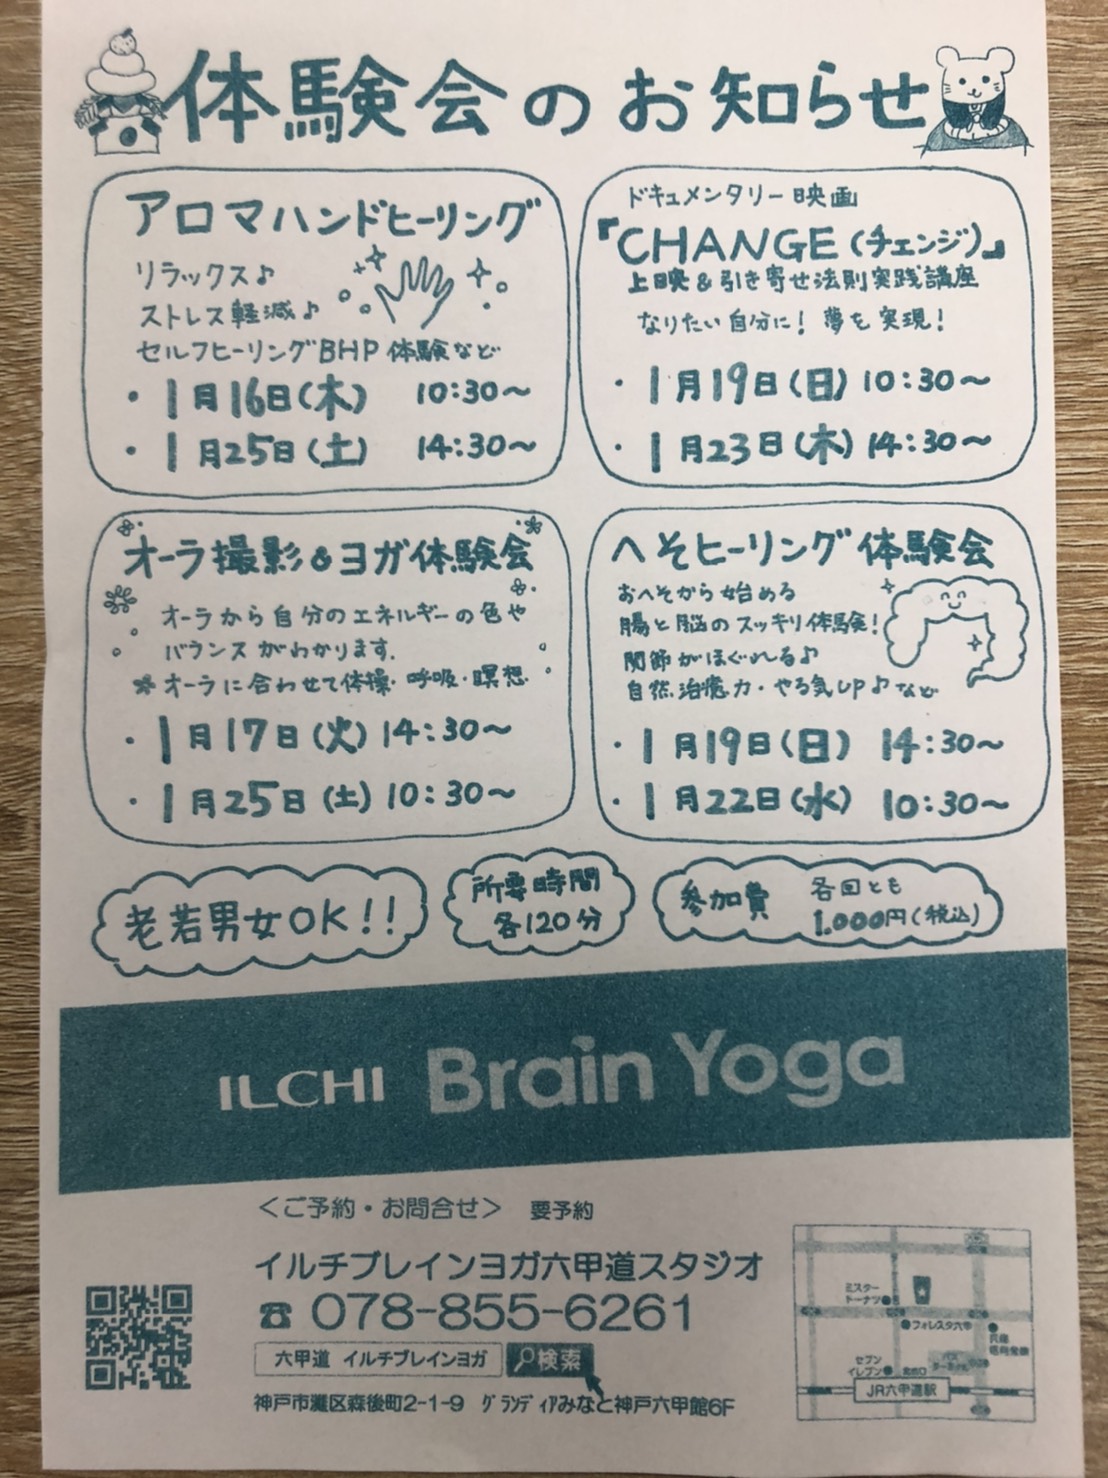 体験会のお知らせ
アロマハンドヒーリング
リラックス♪
ストレス軽減♪
セルフヒーリングBHP体験など
・1月16日(木) 10:30～
・1月25日(土) 14:30～
ドキュメンタリー映画
『CHANGE(チェンジ)』
上映&引き寄せ法則実践講座
なりたい自分に!夢を実現!
・1月19日(日) 10:30～
・1月23日(木) 14:30～
オーラ撮影&ヨガ体験会
オーラから自分のエネルギーの色や
バランスがわかります.
*オーラに合わせて体操・呼吸・瞑想
・1月17日(火) 14:30～
・1月25日(土) 10:30～
へそヒーリング体験会
おへそから始める
腸と脳のスッキリ体験!
関節がほぐれる♪
自然治癒力・やる気UP♪など
・1月19日(日) 14:30～
・1月22日(水) 10:30～
老若男女OK!!
所要時間
各120分
参加費 各回とも
1.000円(税込)
ILCHI Brain Yoga
<ご予約・お問合せ> 要予約
イルチブレインヨガ六甲道スタジオ
☎ 078-855-6261
六甲道 イルチブレインヨガ 検索
神戸市灘区森後町2-1-9 グランディアみなと神戸六甲館6F
ミスター
ドーナツ
フォレスタ六甲
セブン
イレブン
バス
JR六甲道駅